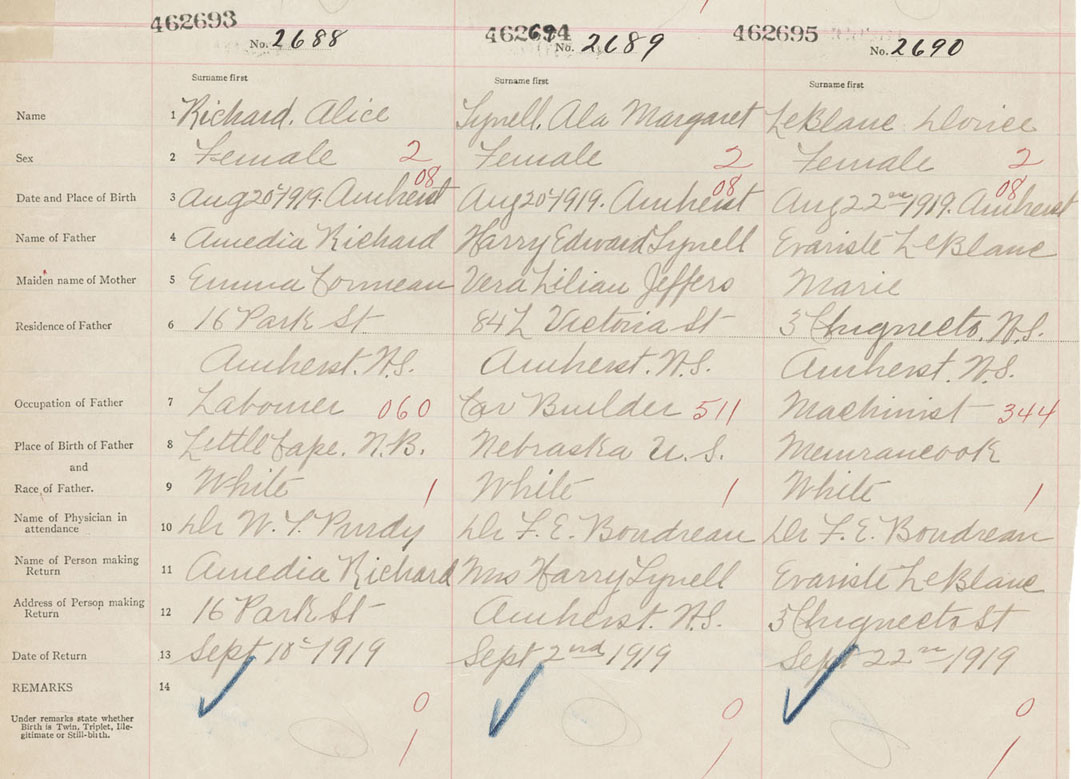 462693 462694 462695
No. 2688 No. 2689 No. 2690
Surname first Surname first Surname first
Name 1 Richard, Alice Lynell, Ala Margaret LeBlanc Dorice
Sex 2 Female 2 Female 2 Female 2
08 08 08
Date and Place of Birth 3 Aug 20th 1919. Amherst Aug 20th 1919. Amherst Aug 22nd 1919. Amherst
Name of Father 4 Amedia Richard Harry Edward Lynell Evariste LeBlanc
Maiden name of Mother 5 Emma Cormeau Vera Lilian Jeffers Marie
Residence of Father 6 16 Park St 84 Victoria St 3 Chignecto, N.S.
Amherst. N.S. Amherst. N.S. Amherst. N.S.
Occupation of Father 7 Labourer 060 Car Builder 511 Machinist 344
Place of Birth of Father 8 Little Cape. N.B. Nebraska U.S. Memrancook
and
Race of Father. 9 White 1 White 1 White 1
Name of Physician in
attendance 10 Dr W. T. Purdy Dr F. E. Boudreau Dr F. E. Boudreau
Name of Person making
Return 11 Amedia Richard Mrs Harry Lynell Evariste LeBlanc
Address of Person making
Return 12 16 Park St Amherst. N.S. Chignecto St
Date of Return 13 Sept 1919 Sept 2nd 1919 Sept 22nd 1919
REMARKS 14
0 0 0
Under remarks state whether
Birth is Twin, Triplet, Ille-
gitimate or Still-birth.
1 1 1